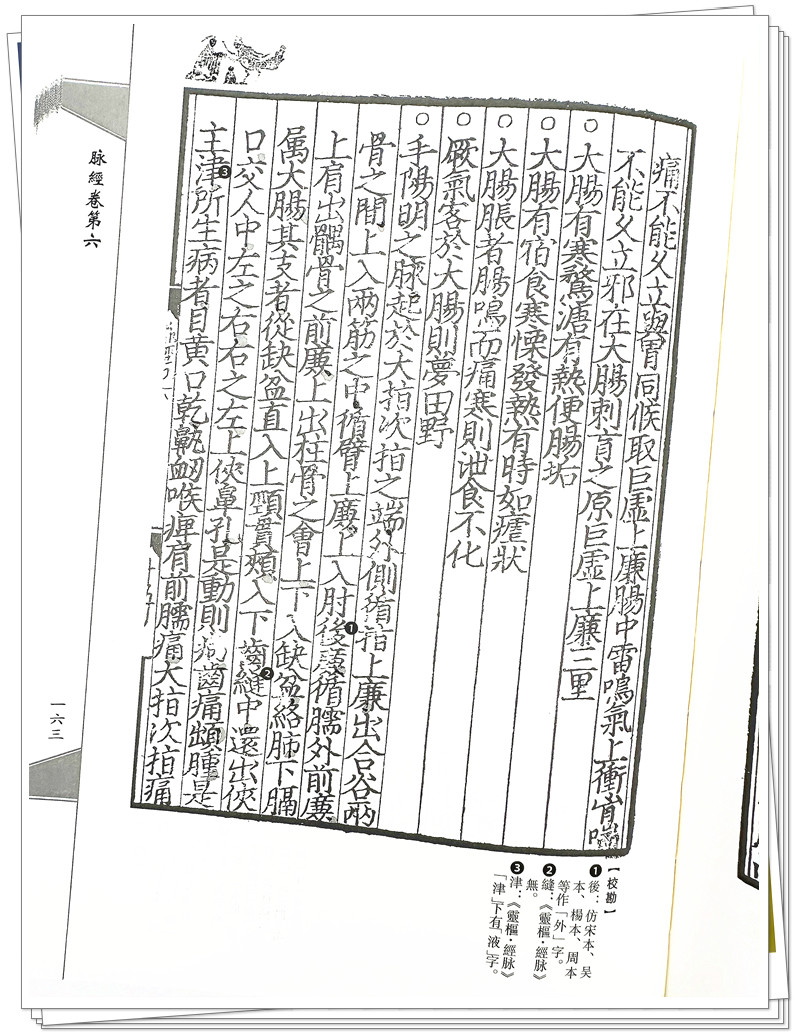 痛不能久立與胃同候取巨虛上廉腸中雷鳴氣上衝胷喘
不能久立邪在大腸刺肓之原巨虛上廉三里
○大腸有寒鶩溏有熱便腸垢
○大腸有宿食寒慄發熱有時如瘧狀
○大腸脹者腸鳴而痛寒則泄食不化
○厥氣客於大腸則夢田野
○手陽明之脉起於大指次指之端外側循指上廉出合谷兩
骨之間上入兩筋之中循臂上廉上入肘後❶廉循臑外前廉
上肩出髃骨之前廉上出柱骨之會上下入缺盆絡肺下膈
属大腸其支者從缺盆直入上頸貫頰入下齒縫❷中還出俠
口交人中左之右右之左上俠鼻孔是動則病齒痛䪼腫是
主津❸所生病者目黄口乾鼽衂喉痺肩前臑痛大指次指痛
【校勘】
❶後：仿宋本、吴
本、楊本、周本
等作「外」字。
❷縫：《靈樞·經脉》
無。
❸津：《靈樞·經脉》
「津」下有「液」字。
脉經卷第六
一六三